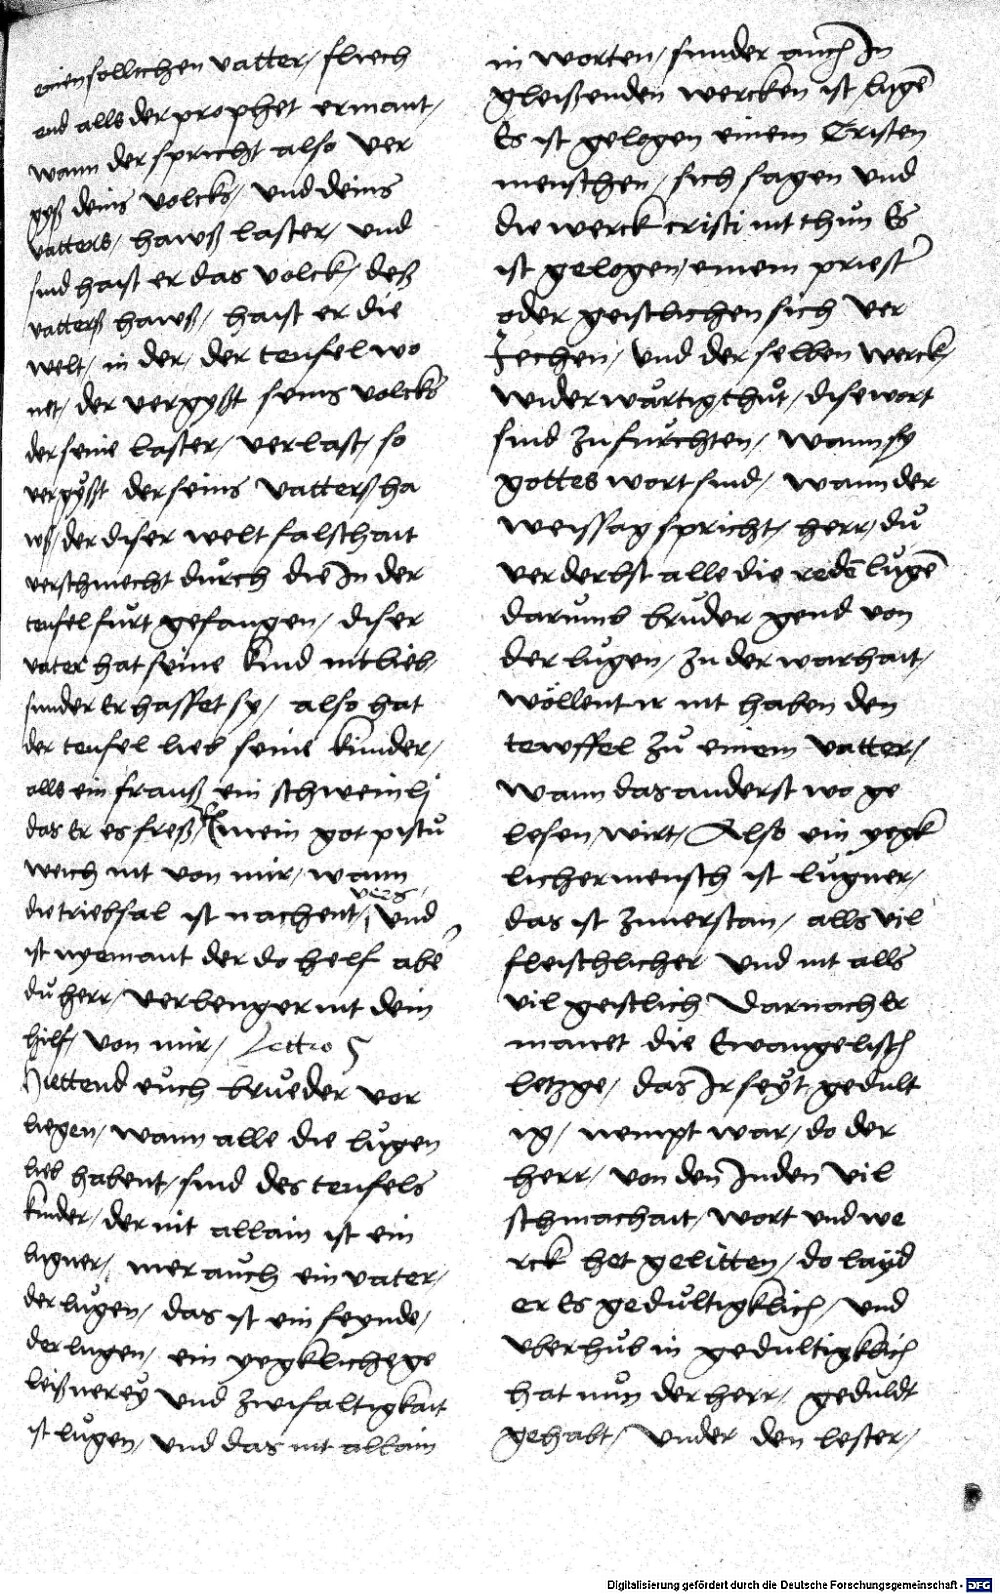 einen sollichen vatter / fliech
end alls der prophet ermant /
wann der spricht also ver
gyß deins volcks / vnd deins
vatters / hawß laster / vnd
sind haist er das volck / deß
vatterß hawß / haist er die
welt / in der / der teufel wo
net / der vergyßt seins volcks
der seine laster / verlast / so
vergyßt der seins vatterß ha
wß / der diser welt falschait
verschmecht durch die In der
teufel fürt gefangen / diser
vater hat seine kind nit lieb /
sunder Er hasset sy / also hat
der teufel lieb seine kinder /
alls ein frauß ein schweinly
das Er es freß / mein got pistu
weich nit von mir / wann
die triebsal ist nachent / vnd
ist nyemant der do helf aber
du herr / verlenger nit dein
hilf / von mir / Lectio 5
Hiettend euch brueder vor
liegen / wann alle die lugen
lieb habent / sind des teufels
kinder / der nit allain ist ein
lugner / mer auch ein vater /
der lugen / das ist ein feynde /
der lugen / ein yegkliche ge
leißnerey vnd zwifaltigkait
ist lugen / vnd das nit allain
in worten / sunder auch In
gleißenden wercken ist lugen
Es ist gelogen einem Cristen
menschen / sich sagen vnd
die werck cristi nit thun Es
ist gelogen / einem priester
oder geistlichen sich ver
Jechen / vnd der selben werck /
widerwärtig thut / dise wort
sind zu furchten / wann sy
gottes wort sind / wann der
weissag spricht / herr / du
verderbst alle die reden lugen
darumb bruder gend von
der lugen / zu der warhait /
wöllent ir nit haben den
tewffel zu einem vatter /
wann das anderst wo ge
lesen / wirt / Also ein yegk
licher mensch ist lugner /
das ist zuuerstan / alls vil
fleischlicher vnd nit alls
vil geistlich Darnach Er
manet die Ewangelisch
letzge / das Ir seyt gedult
ig / nempt war / do der
herr / von den Juden vil
schmachait / wort vnd we
rck het gelitten / do layd
er Es gedultigklich / vnd
vberhub in gedultigklich
hat nun der herr / geduldt
gehabt / vnder den lester /